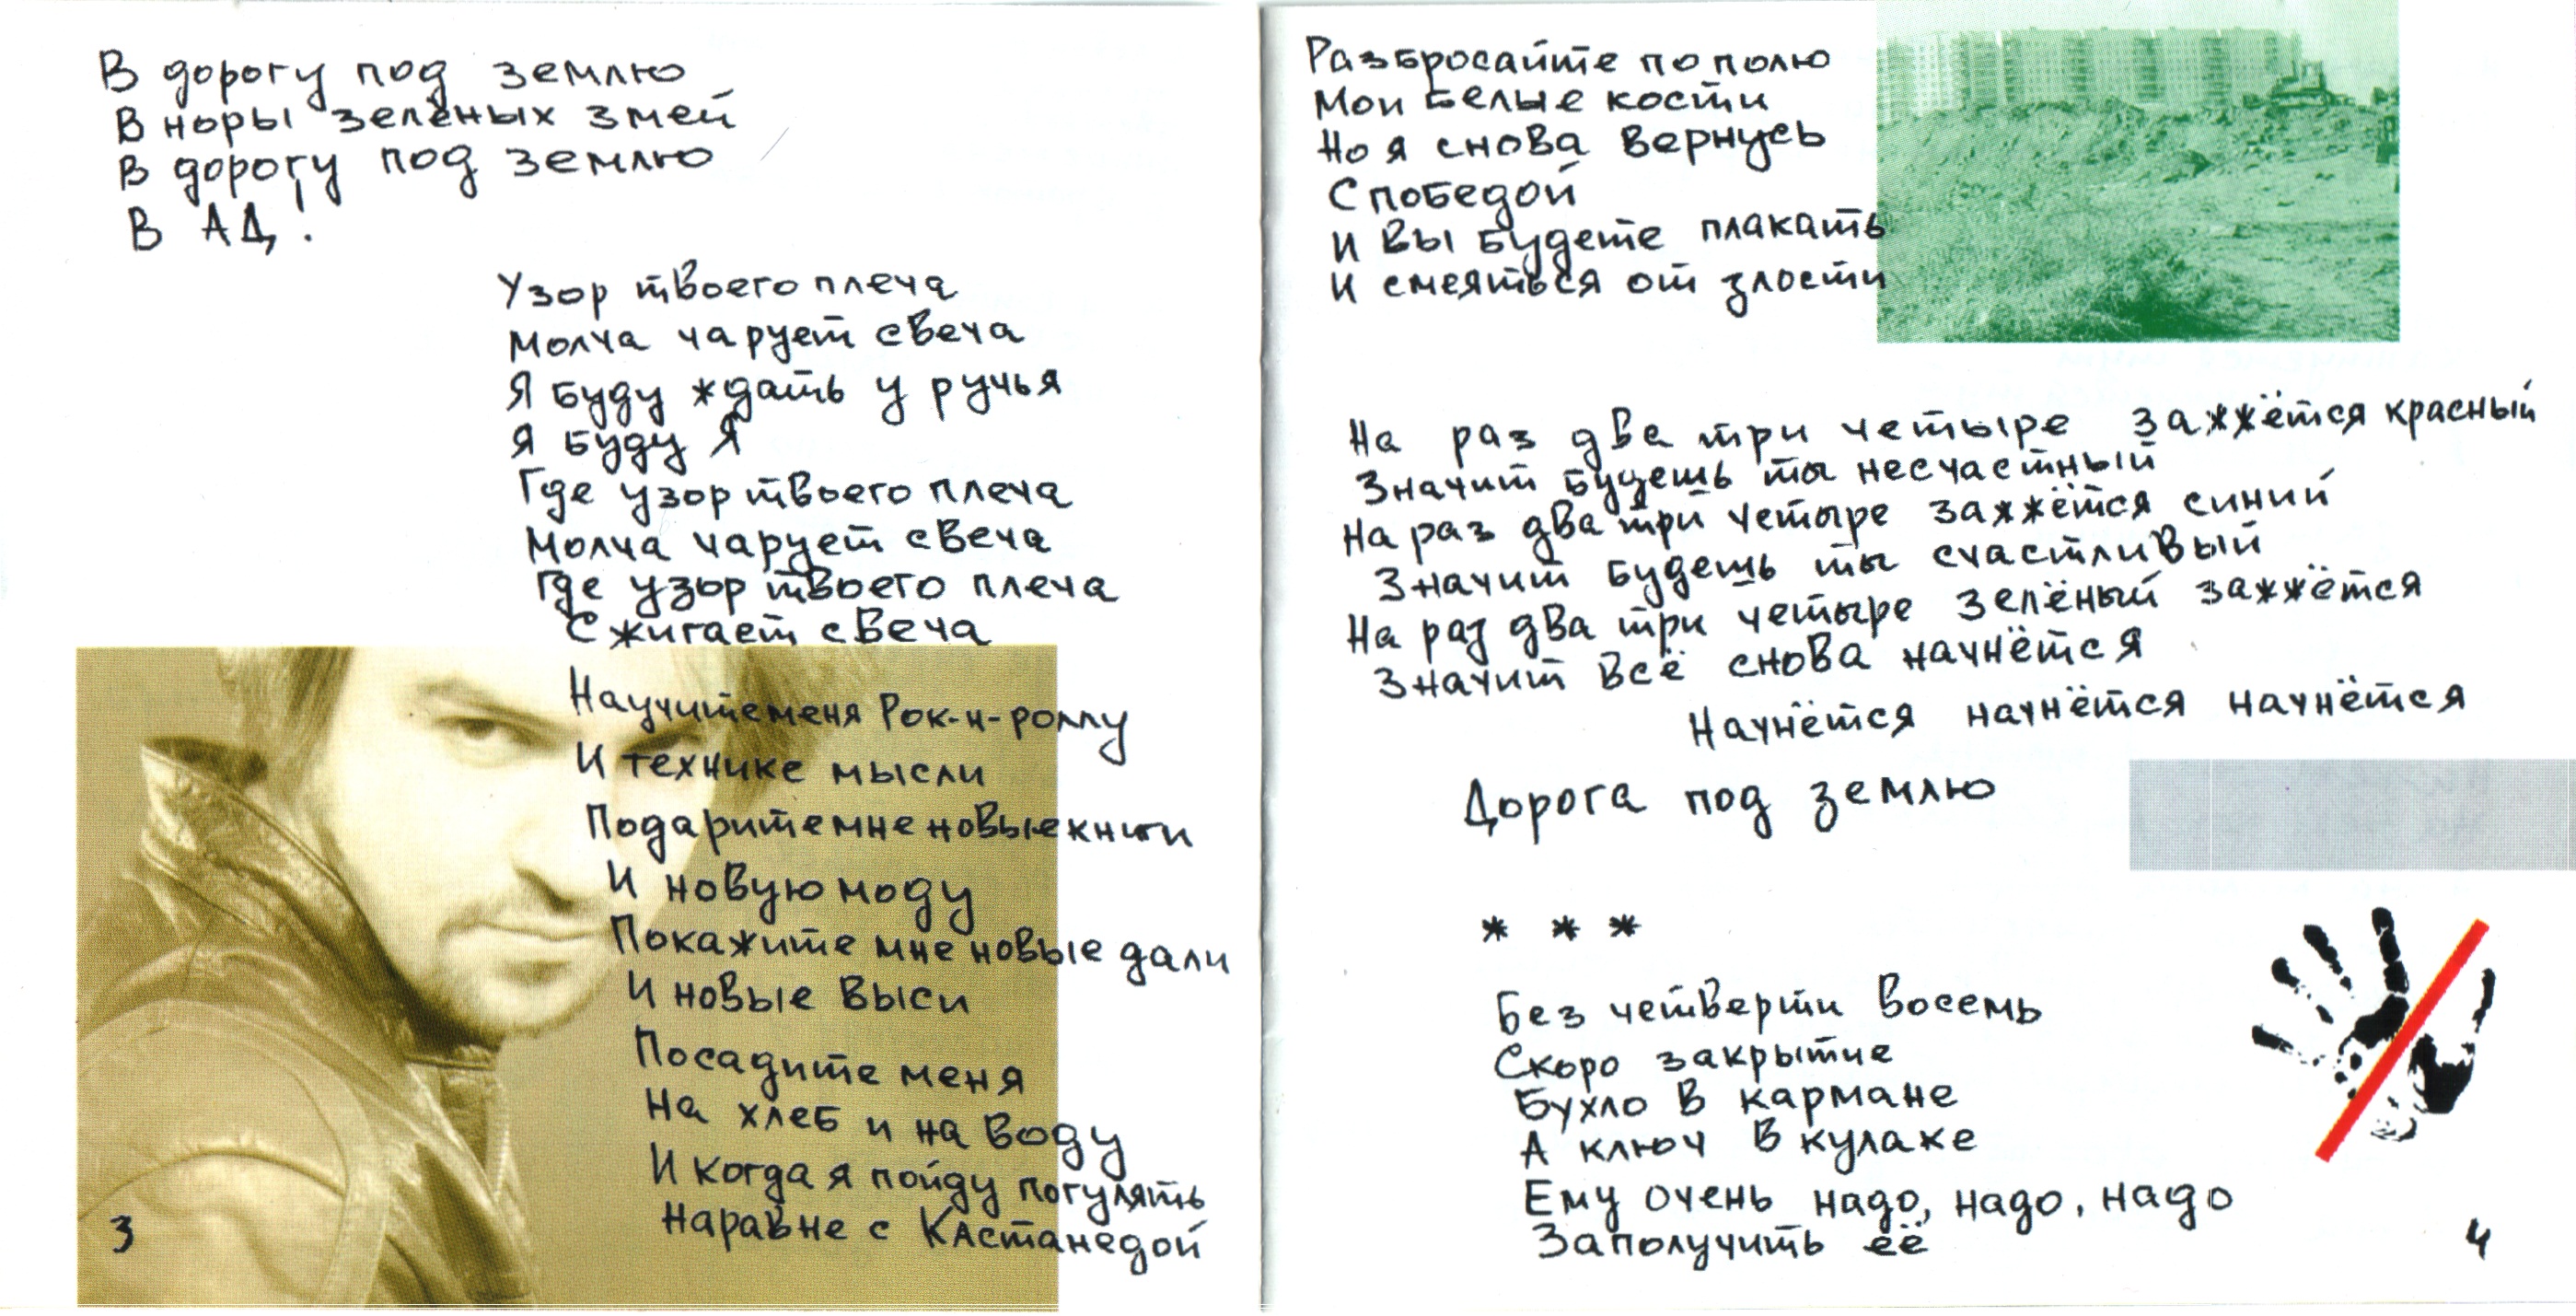 В дорогу под землю
В норы зелёных змей
В дорогу под землю
В АД!
Узор твоего плеча
Молча чарует свеча
Я буду ждать у ручья
Я буду Я
Где узор твоего плеча
Молча чарует свеча
Где узор твоего плеча
Сжигает свеча
Научите меня Рок-н-роллу
И технике мысли
Подарите мне новые книги
И новую моду
Покажите мне новые дали
И новые выси
Посадите меня
На хлеб и на воду
И когда я пойду погулять
Наравне с Кастанедой
3
Разбросайте по полю
Мои белые кости
Но я снова вернусь
С победой
И вы будете плакать
И смеяться от злости
На раз два три четыре зажжётся красный
Значит будешь ты несчастный
На раз два три четыре зажжётся синий
Значит будешь ты счастливый
На раз два три четыре зелёный зажжётся
Значит всё снова начнётся
Начнётся начнётся начнётся
Дорога под землю
* * *
Без четверти восемь
Скоро закрытие
Бухло в кармане
А ключ в кулаке
Ему очень надо, надо, надо
Заполучить её
4